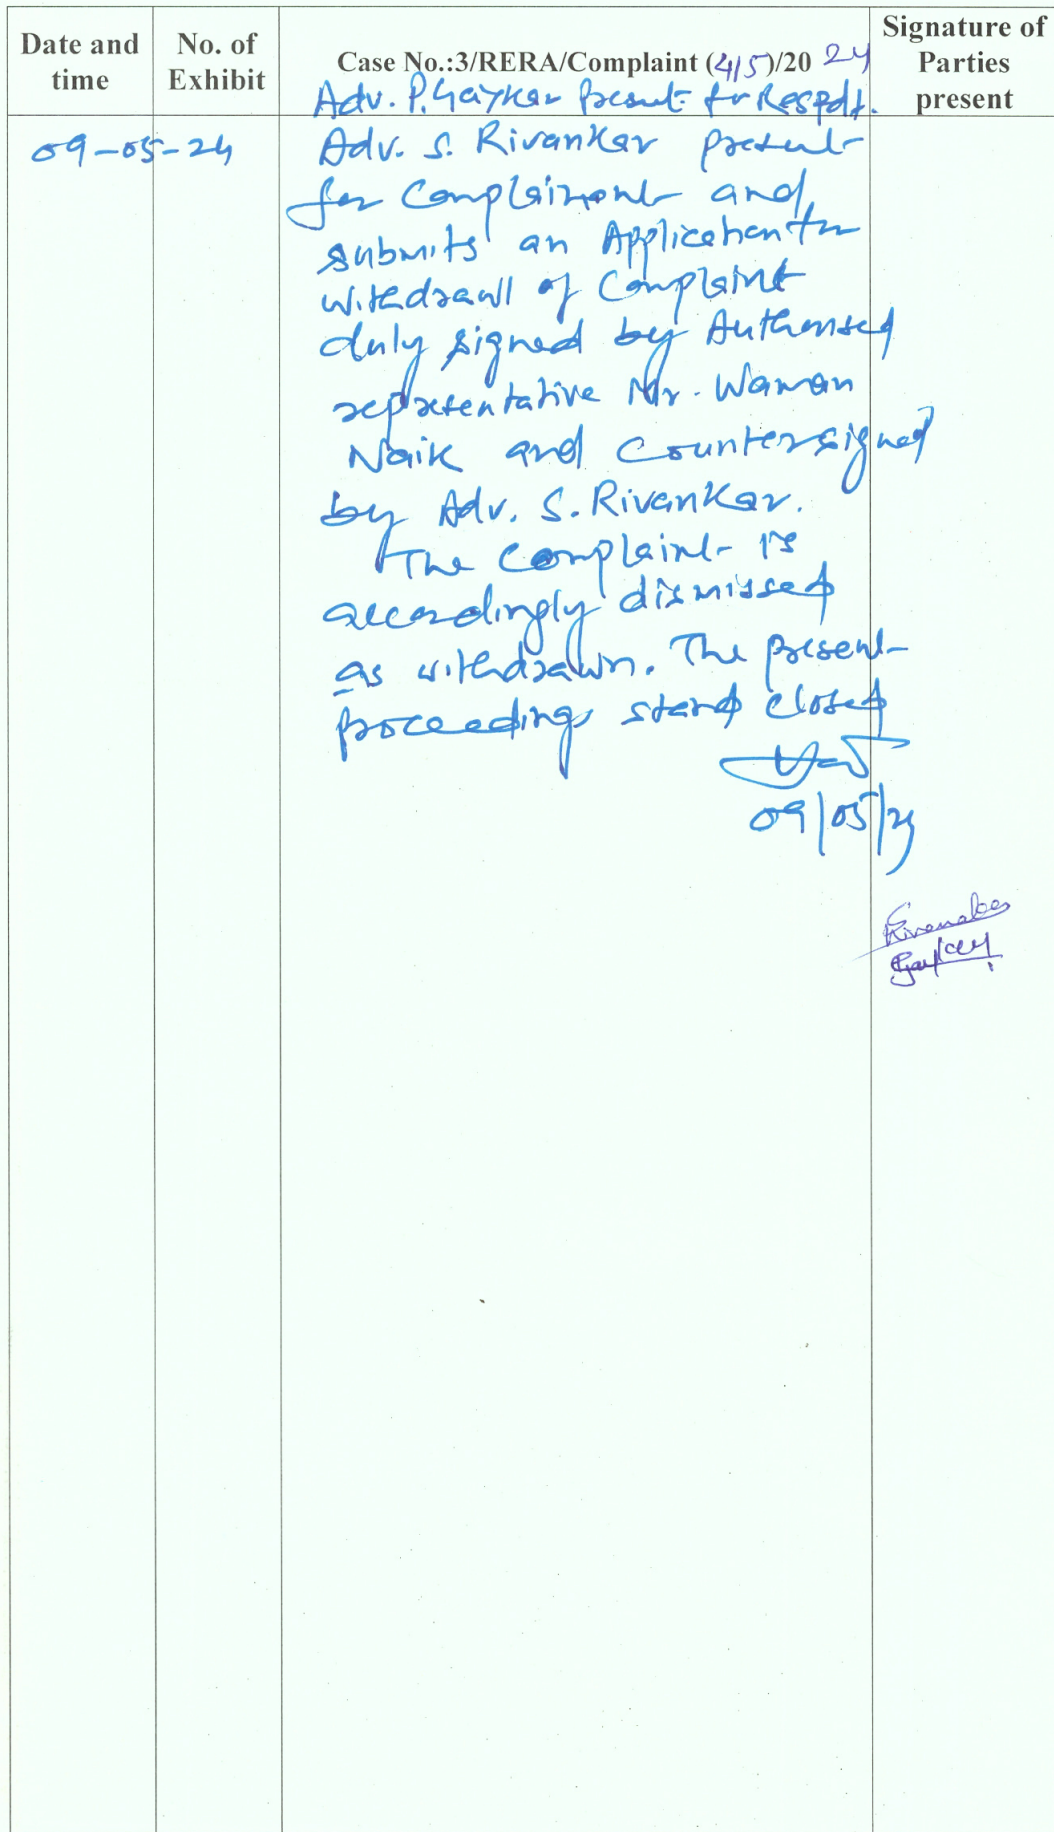 Date and time
No. of Exhibit
Case No.:3/RERA/Complaint (415)/20 24
Signature of Parties present
Adv. P. Gaykar present for Respdt.
09-05-24
Adv. S. Rivankar present
for Complainant and
submits an Application for
withdrawll of Complaint
duly signed by Authorised
representative Mr. Waman
Naik and Countersigned
by Adv. S. Rivankar.
The Complaint is
accordingly dismissed
as withdrawn. The present
proceedings stand closed
09/05/24
Rivankar
Gaykar